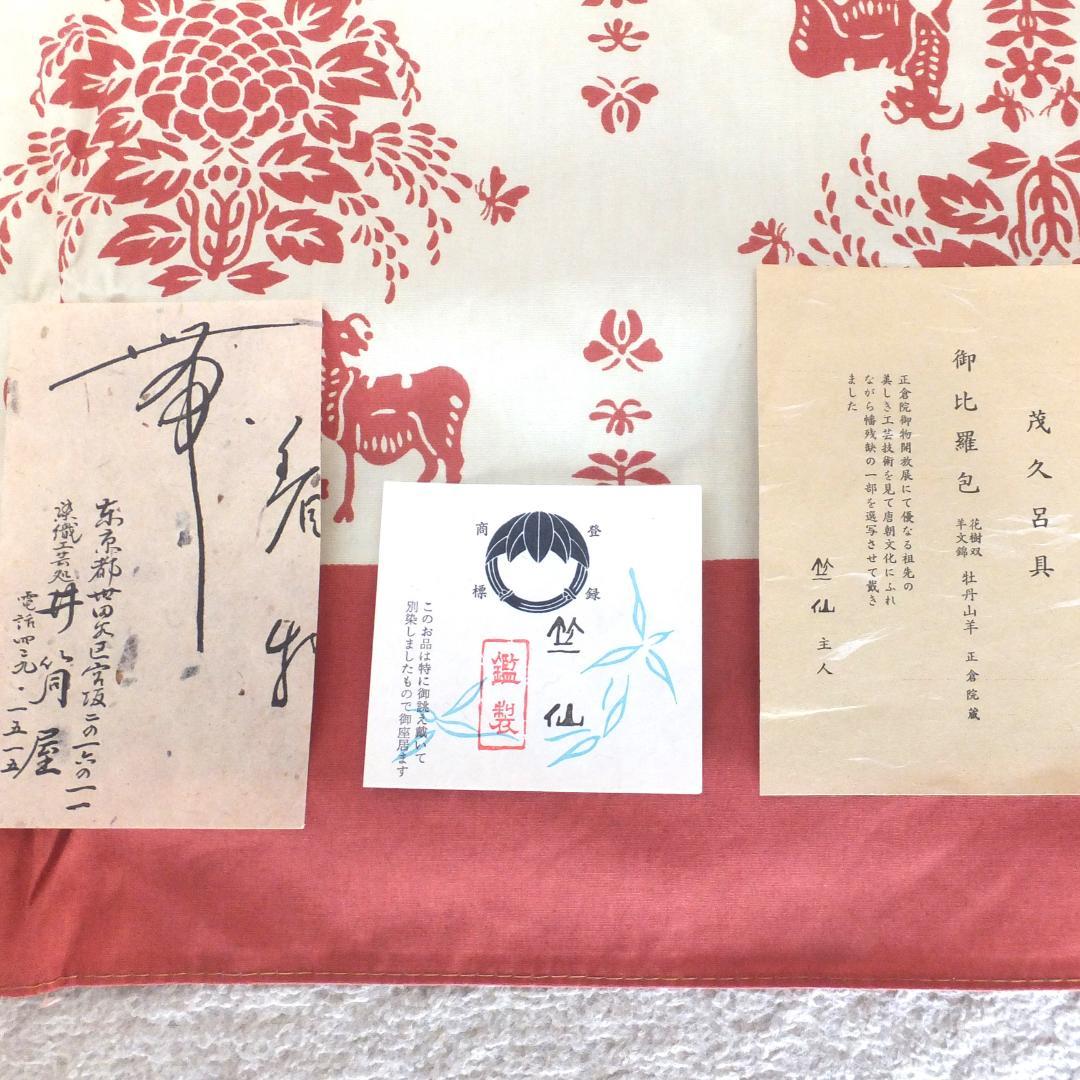 茂久呂具
御比羅包
花樹双
羊文錦
牡丹山羊
正倉院蔵
正倉院御物開放展にて優なる祖先の
美しき工芸技術を見て唐朝文化にふれ
ながら幡残欠の一部を選写させて戴き
ました
竺仙 主人
登録
商標
竺仙
鑑製
このお品は特に御誂え戴いて
別染しましたもので御座居ます
着物
帯
東京都世田谷区宮坂二の一六の一一
染織工芸処
井筒屋
電話四二九・一五一五